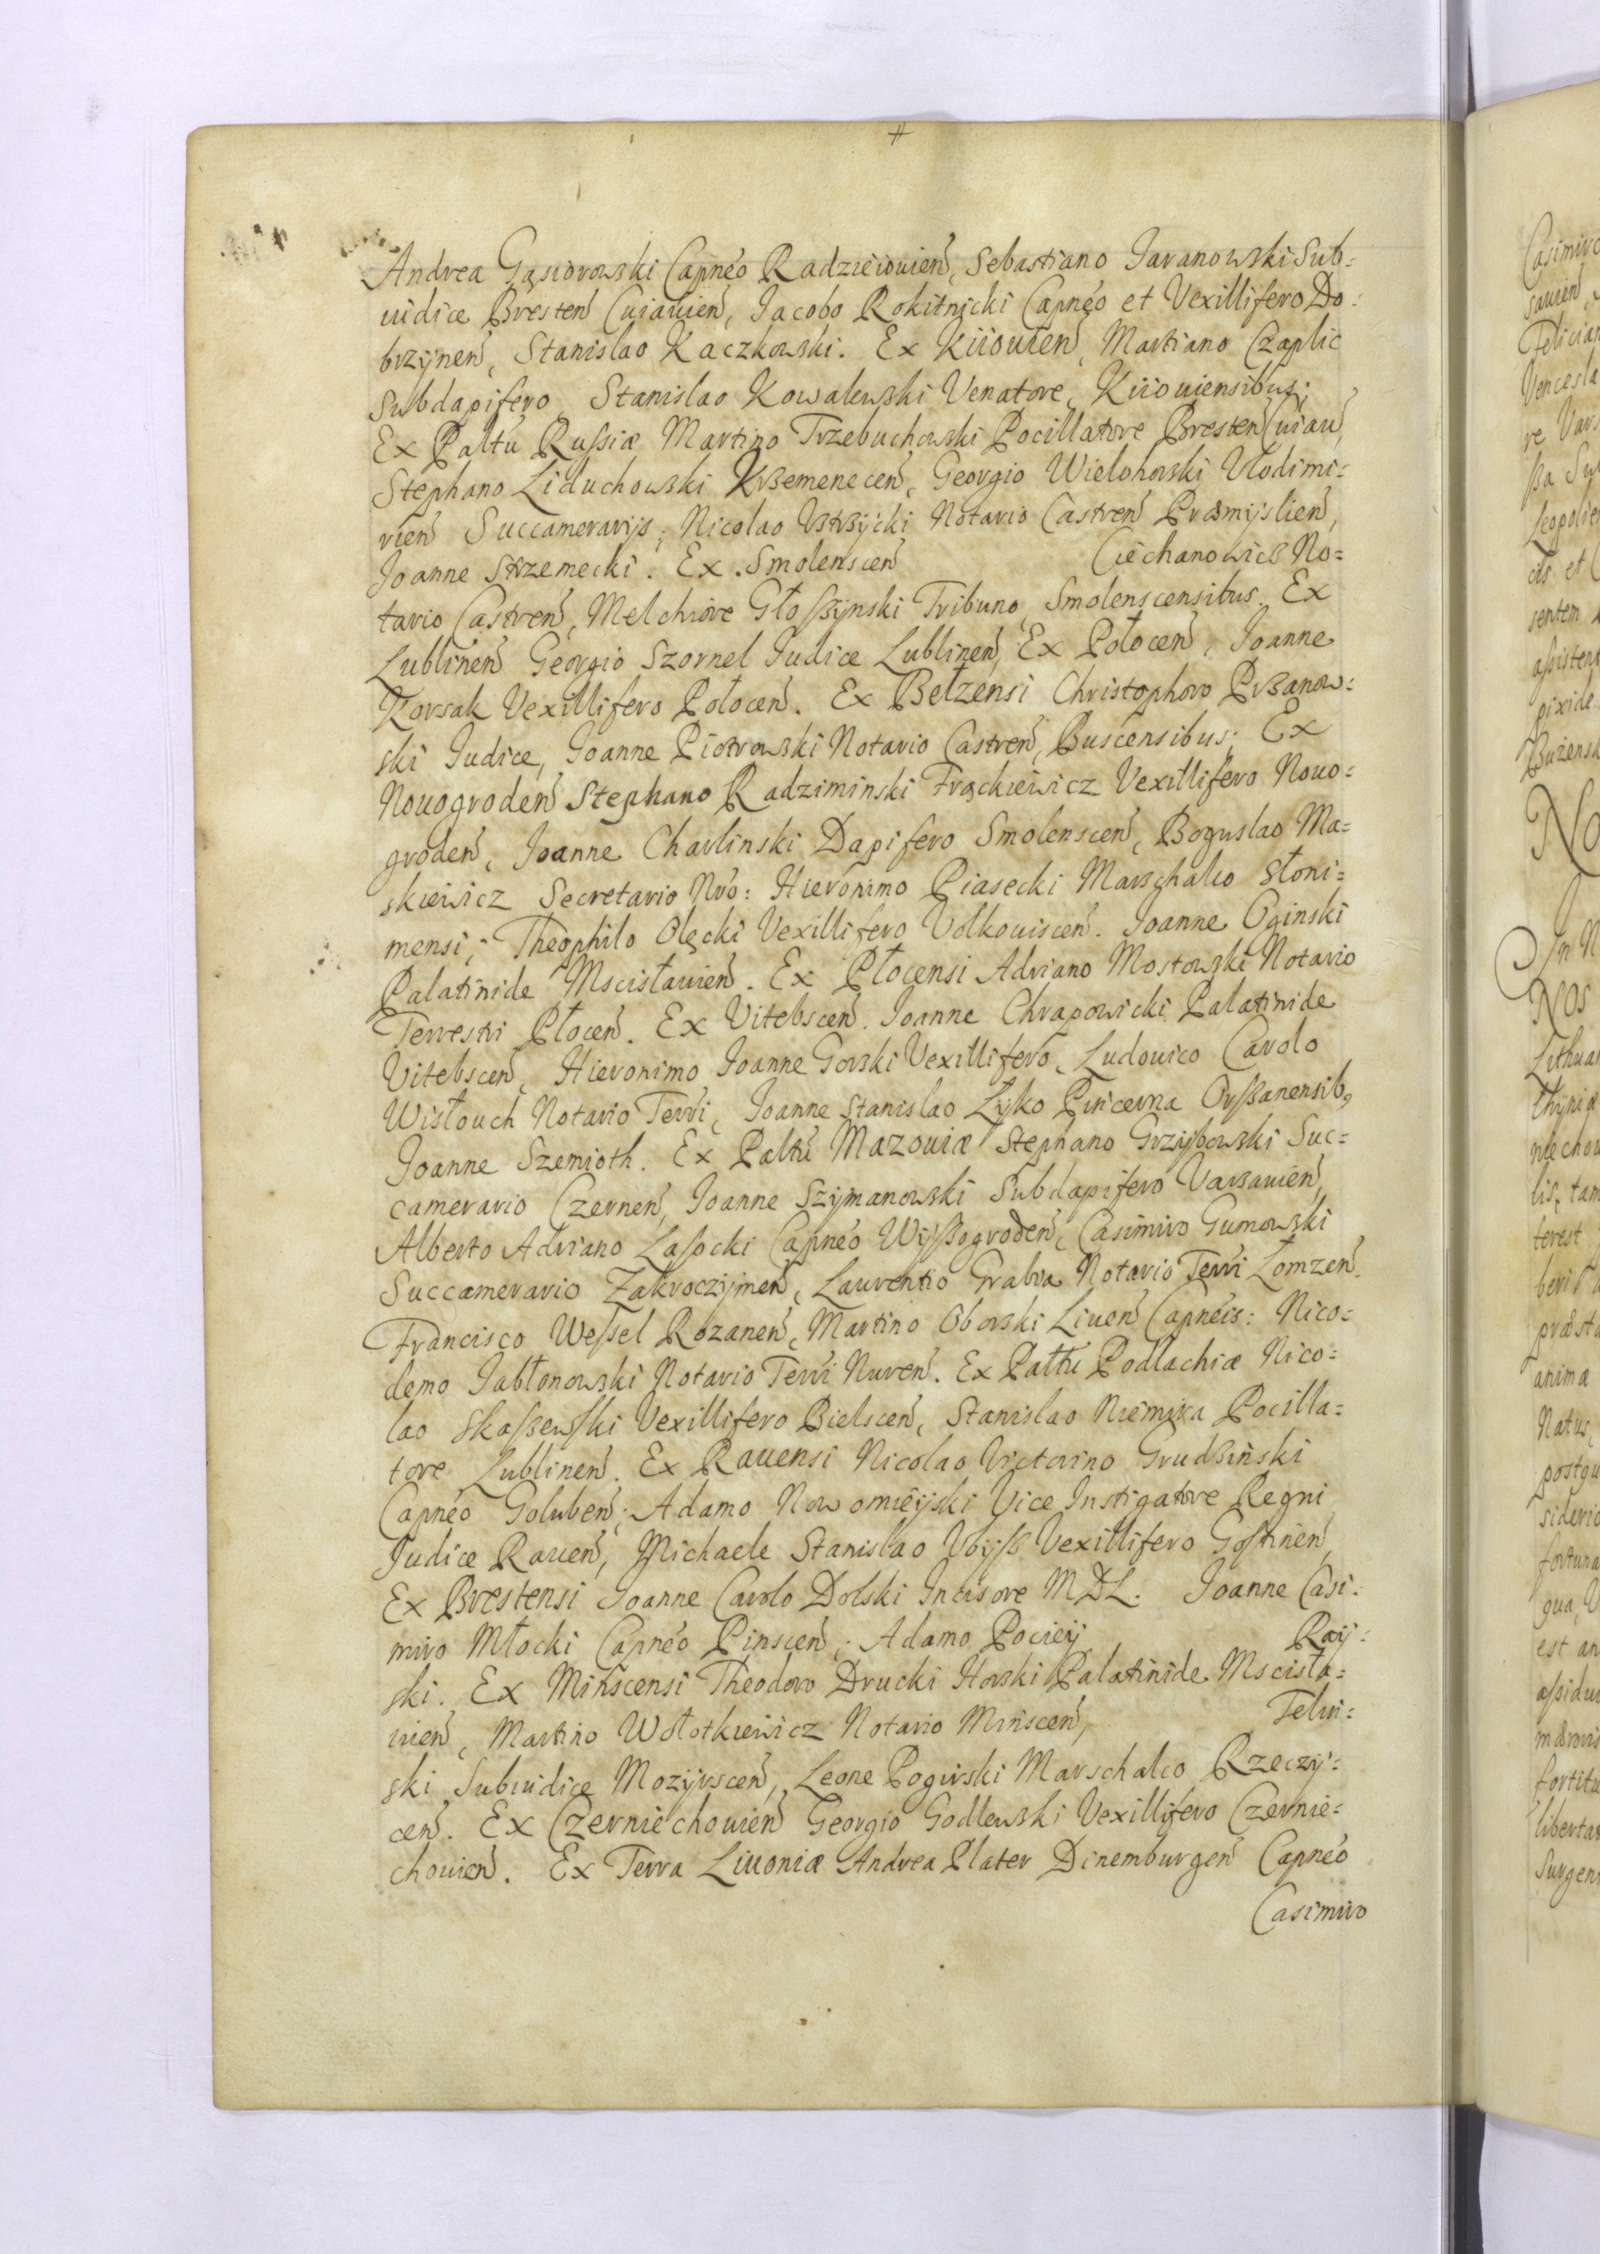 Andrea Gąsiorowski Capnéo Radzieiouien̄, Sebastiano Jaranowski Sub=
iudice Bresten̄ Cuiauien̄, Jacobo Rokitnicki Capnéo et Vexillifero Do=
brzÿnen̄, Stanislao Kaczkowski. Ex Kiiouien̄, Martiano Czaplic
Subdapifero, Stanislao Kowalewski Venatore, Kiiouiensibus;
Ex Paltu Rußiæ Martino Trzebuchowski Pocillatore Bresten̄ Cuiau̅,
Stephano Liduchowski Krzemenecen̄, Georgio Wielohorski Vlodimi=
rien̄ Succamerarijs; Nicolao Vstrzÿcki Notario Castren̄ Præmÿslien̄,
Joanne Strzemecki. Ex Smolenscen̄ Ciechanowicz No=
tario Castren̄, Melchiore Głoßÿnski Tribuno, Smolenscensibus. Ex
Lublinen̄ Georgio Szornel Judice Lublinen̄, Ex Połocen̄, Joanne
Korsak Vexillifero Połocen̄. Ex Bełzensi Christophoro Przanow=
ski Judice, Joanne Piotrowski Notario Castren̄, Buscensibus; Ex
Nouogroden̄ Stephano Radziminski Frąckiewicz Vexillifero Nouo=
groden̄, Joanne Charlinski Dapifero Smolenscen̄, Boguslao Ma=
skiewicz Secretario Nr̄o: Hieronimo Piasecki Marschalco Słoni=
mensi; Theophilo Olęcki Vexillifero Vołkouiscen̄. Joanne Oginski
Palatinide Mscisłauien̄. Ex Płocensi Adriano Mostowski Notario
Terrestri Płocen̄. Ex Vitebscen̄. Joanne Chrapowicki Palatinide
Vitebscen̄, Hieronimo Joanne Gorski Vexillifero, Ludouico Carolo
Wisłouch Notario Terr̄i, Joanne Stanislao Lÿko Pincerna Orßanensib9
Joanne Szemioth. Ex Paltu Mazouiæ Stephano Grzÿbowski Suc=
camerario Czernen̄, Joanne Szÿmanowski Subdapifero Varsauien̄,
Alberto Adriano Laßocki Capnéo Wÿßogroden̄, Casimiro Gumowski
Succamerario Zakroczÿmen̄, Laurentio Grabia Notario Terr̄i Łomzen̄.
Francisco Weßel Rozanen̄, Martino Oborski Liuen̄ Capnéis: Nico=
demo Jabłonowski Notario Terr̄i Nuren̄. Ex Paltu Podlachiæ Nico=
lao Skaßewski Vexillifero Bielscen̄, Stanislao Niemira Pocilla=
tore Lublinen̄. Ex Rauensi Nicolao Victorino Grudziński
Capnéo Goluben̄; Adamo Nowomieÿski Vice Instigatore Regni
Judice Rauen̄, Michaele Stanislao Vbÿß Vexillifero Gostinen̄,
Ex Brestensi Joanne Carolo Dolski Incisore M D L. Joanne Casi=
miro Młocki Capnéo Pinscen̄; Adamo Pocieÿ Raÿ=
ski. Ex Minscensi Theodoro Drucki Horski Palatinide Mscisła=
uien̄, Martino Wołotkiewicz Notario Minscen̄, Telui=
ski Subiudice Mozÿrscen̄, Leone Pogirski Marschalco Rzeczÿ=
cen̄. Ex Czerniechouien̄ Georgio Godlewski Vexillifero Czernie=
chouien̄. Ex Terra Liuoniæ Andrea Plater Dinemburgen̄ Capnéo
Casimiro